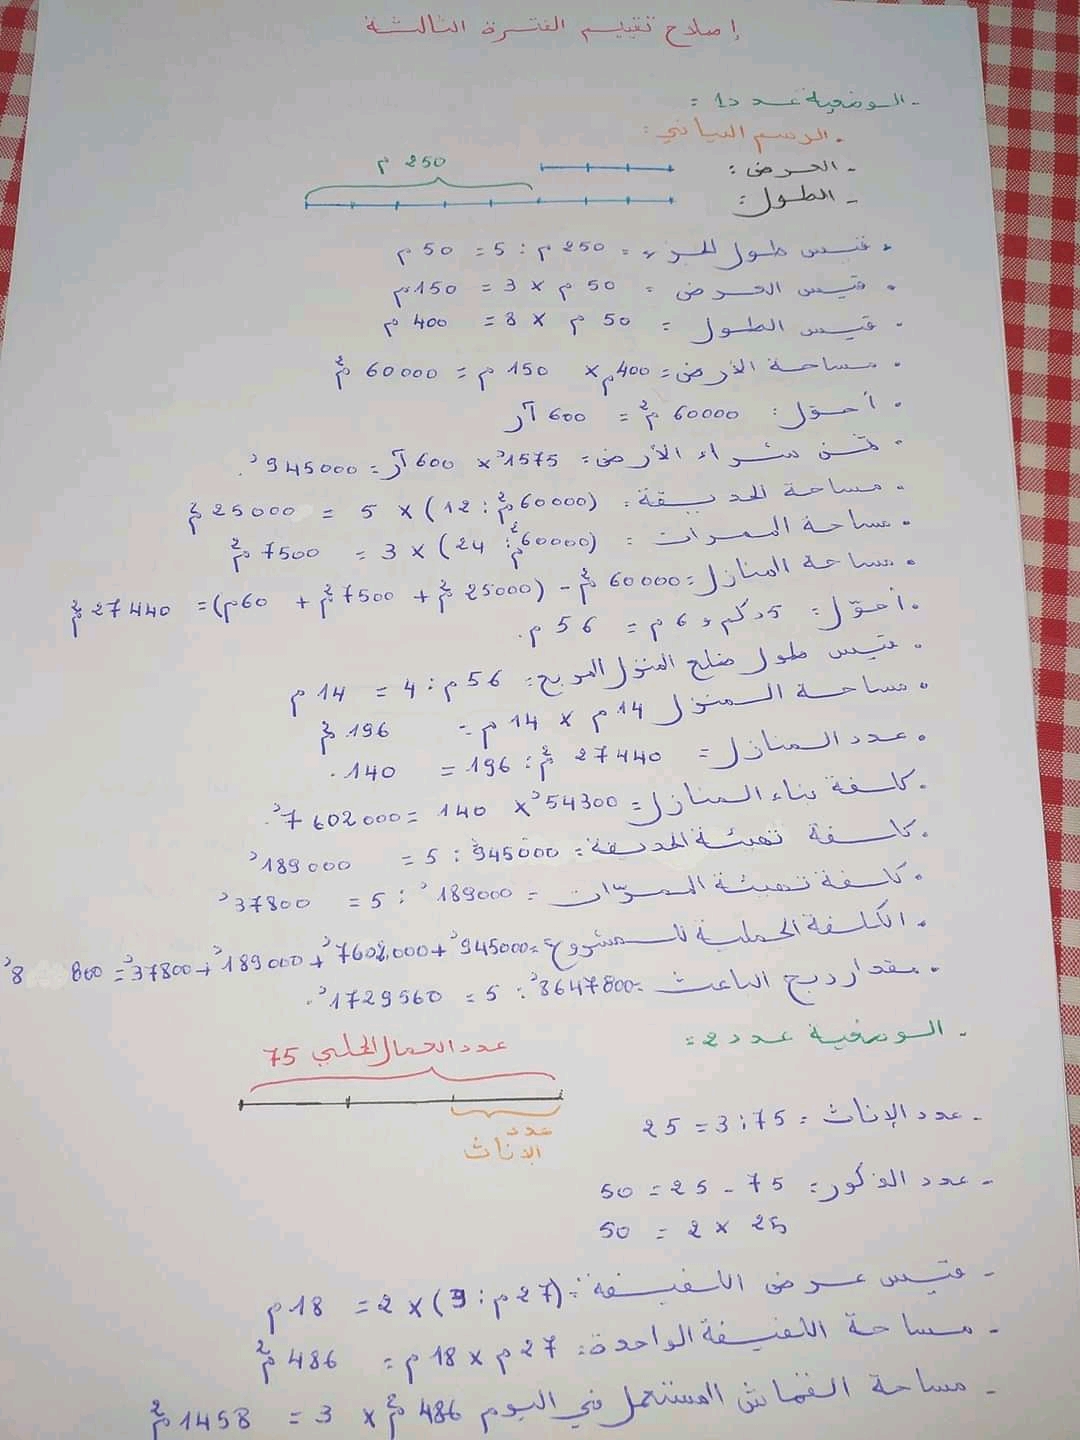 إصلاح تقييم الفترة الثالثة
- الوضعية عدد 1 :
. الرسم البياني :
- العرض :
250 م
- الطول :
. قيس طول الجزء = 250 م : 5 = 50 م
. قيس العرض = 50 م × 3 = 150 م
. قيس الطول = 50 م × 8 = 400 م
. مساحة الأرض = 400 م × 150 م = 60000 م²
. أحوّل : 60000 م² = 600 آر
. ثمن شراء الأرض = 1575د × 600 آر = 945000د.
. مساحة الحديقة = (60000 م² : 12) × 5 = 25000 م²
. مساحة الممرات = (60000 م² : 24) × 3 = 7500 م²
. مساحة المنازل = 60000 م² - (25000 م² + 7500 م² + 60 م) = 27440 م²
. أحوّل : 5 دكم و 6 م = 56 م.
. قيس طول ضلع المنزل المربع = 56 م : 4 = 14 م
. مساحة المنزل 14 م × 14 م = 196 م²
. عدد المنازل = 27440 م² : 196 = 140.
. كلفة بناء المنازل = 54300د × 140 = 7602000د.
. كلفة تهيئة الحديقة = 945000 : 5 = 189000د
. كلفة تهيئة الممرّات = 189000د : 5 = 37800د
. الكلفة الجملية للمشروع = 945000د + 7602000د + 189000د + 37800د = 800 8د
. مقدار ربح الباعث = 8647800د : 5 = 1729560د.
- الوضعية عدد 2 :
عدد العمال الجملي 75
عدد
الإناث
- عدد الإناث = 75 : 3 = 25
- عدد الذكور = 75 - 25 = 50
25 × 2 = 50
- قيس عرض اللفيفة = (27 م : 3) × 2 = 18 م
- مساحة اللفيفة الواحدة = 27 م × 18 م = 486 م²
- مساحة القماش المستعمل في اليوم 486 م² × 3 = 1458 م²